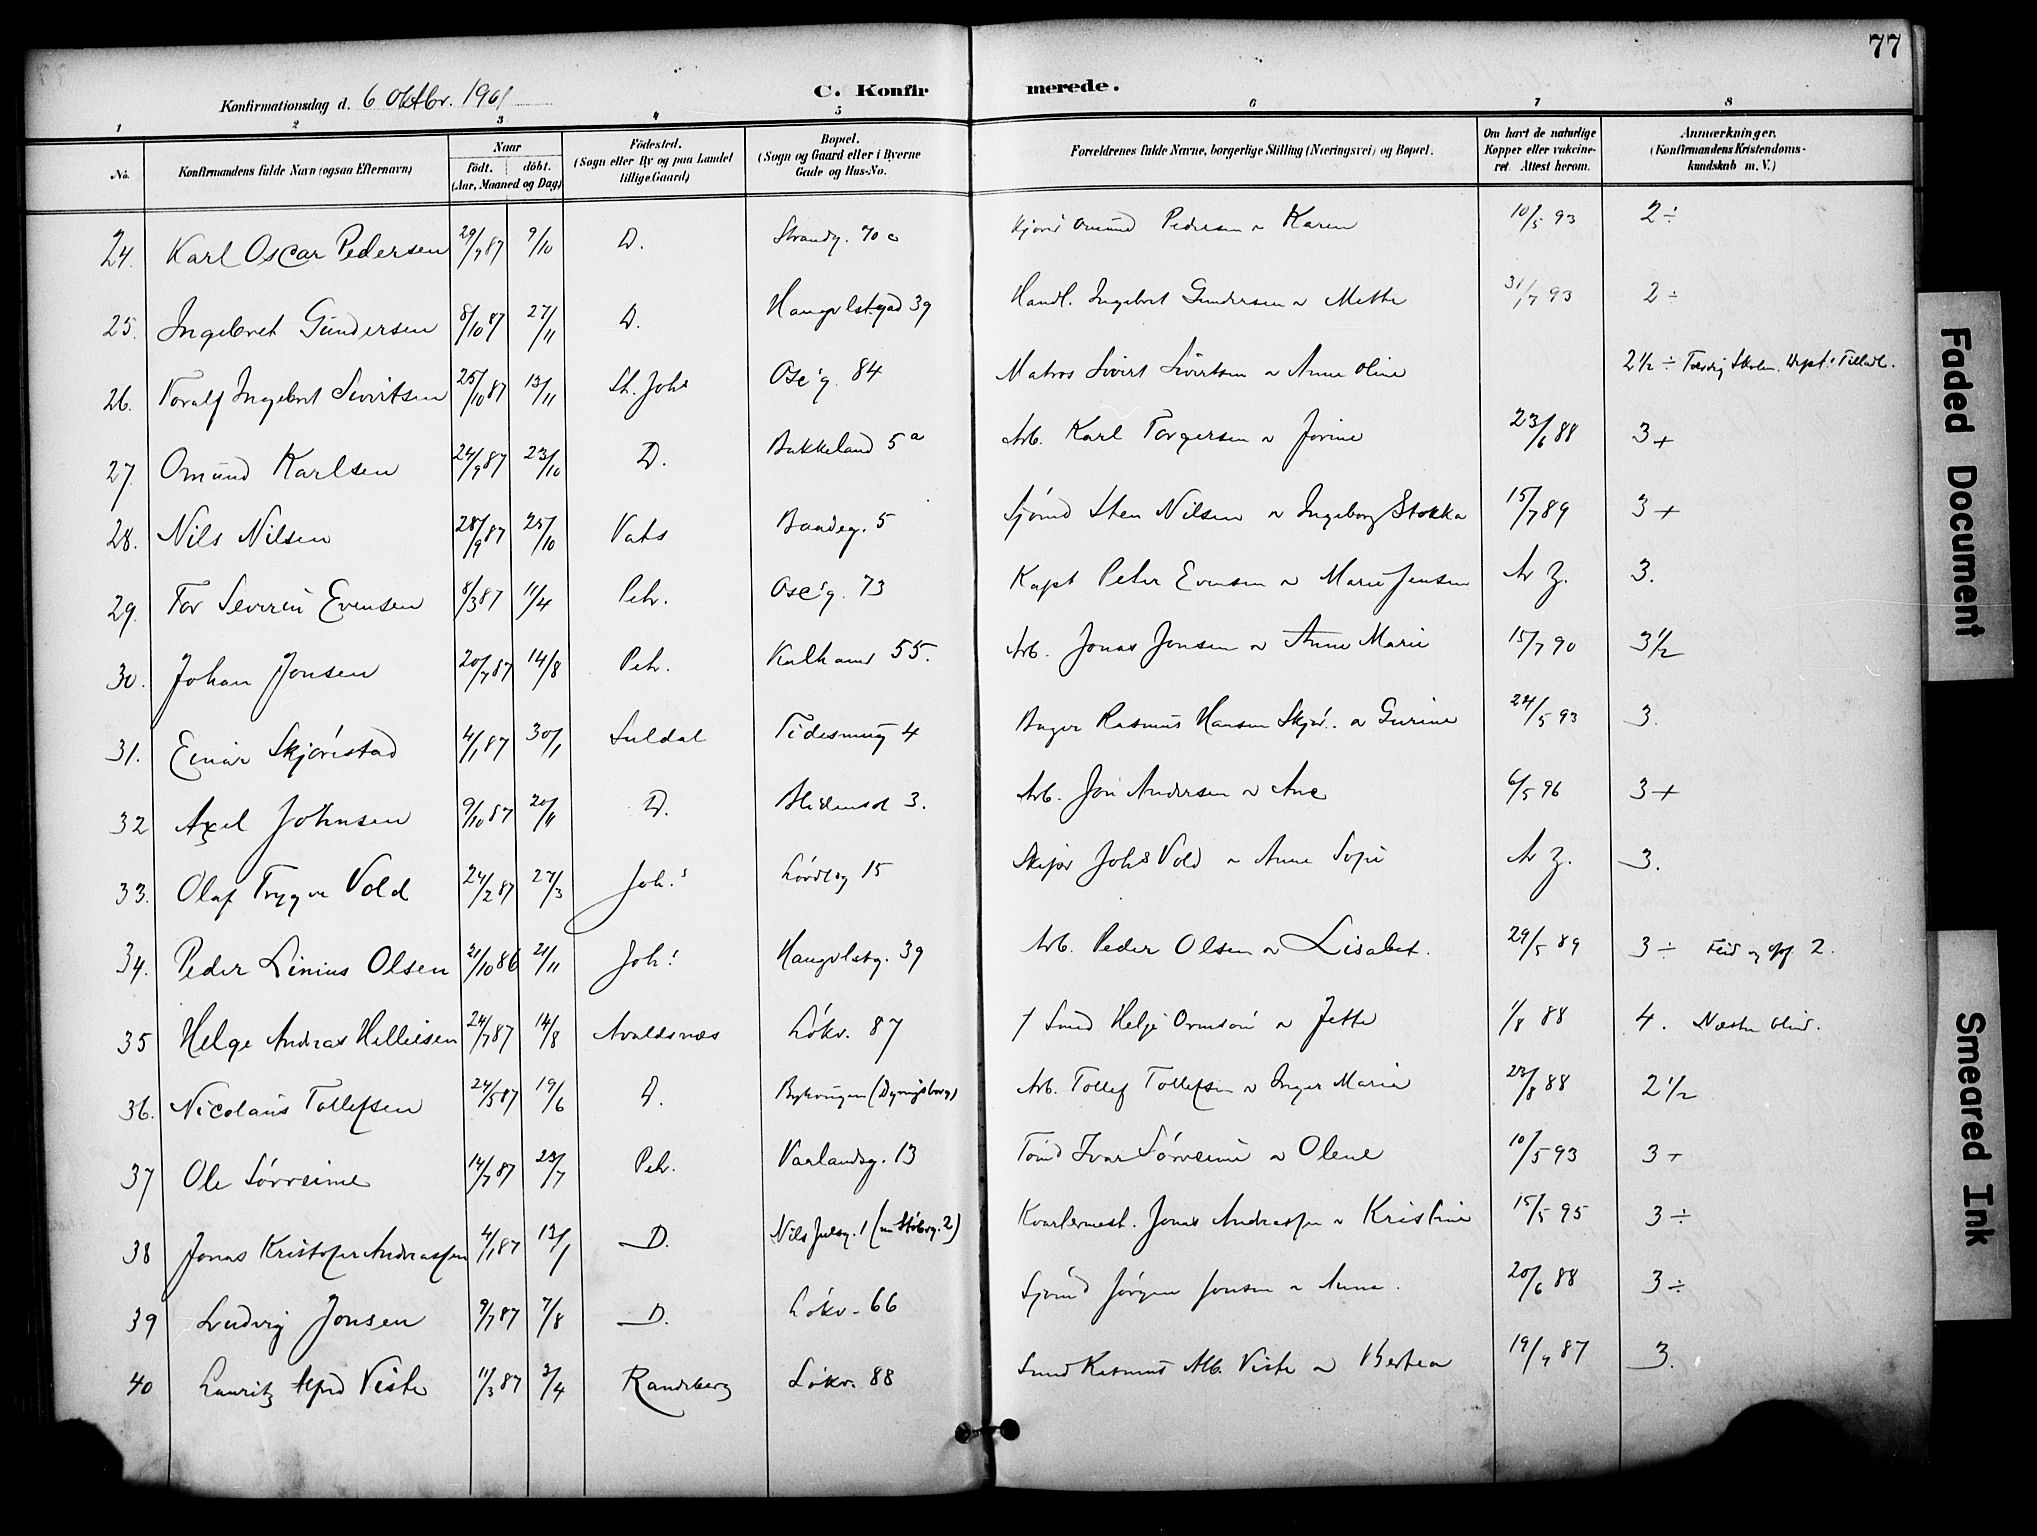 77
Konfirmationsdag d. 6 Oktbr. 1901
C. Konfirmerede.
1 2 3 4 5 6 7 8
No. Konfirmandens fulde Navn (ogsaa Efternavn) Naar födt. döbt. (Aar, Maaned og Dag) Födested. (Sogn eller By og paa Landet tillige Gaard) Bopæl. (Sogn og Gaard eller i Byerne Gade og Hus-No. Forældrenes fulde Navne, borgerlige Stilling (Næringsvei) og Bopæl. Om havt de naturlige Kopper eller vaccineret. Attest herom. Anmærkninger. (Konfirmandens Kristendomskundskab m. V.)
24. Karl Oscar Pedersen 29/9 87 9/10 D. Strandg. 70 c Omund Pedersen o Karen 10/5 93 2 ÷
25. Ingebret Gundersen 8/10 87 27/11 D. 39 Handl. Ingebret Gundersen o Mette 31/7 93 2 ÷
26. Toralf Ingebret Sivertsen 25/10 87 13/11 St. Johs Ose'g. 84 Matros Sivert Sivertsen o Anne Oline 2 1/2 ÷
27. Omund Karlsen 24/9 87 23/10 D. Bakkeland 5 a Arb. Karl Torgersen o Jorine 23/6 88 3 +
28. Nils Nilsen 28/9 87 25/10 Vats Baadeg. 5 Sjömd Sten Nilsen o Ingeborg Stokka 15/7 89 3 +
29. Tor Severin Evensen 8/3 87 11/4 Petr. Ose'g. 73 Kapt Peter Evensen o Marie Jensen Ar Z. 3.
30. Johan Jonsen 20/7 87 14/8 Petr. Kalham 55. Arb. Jonas Jonsen o Anne Marie 15/7 90 3 1/2
31. Einar Skjörestad 4/1 87 30/1 Suldal Tidesmug 4 Bager Rasmus Hansen Skjör. o Gurine 24/5 93 3.
32 Axel Johnsen 9/10 87 20/11 D. Blidensol 3. Arb. Jon Andersen o Ane 6/5 96 3 +
33. Olaf Trygve Vold 24/2 87 27/3 Joh.s 15 Skipr Johs Vold o Anne Sofie Ar Z. 3.
34. Peder Linius Olsen 31/10 86 21/11 Joh.s Haugvlstg. 39 Arb. Peder Olsen o Lisabet. 29/5 89 3 ÷ Flid og Opf. 2.
35 Helge Andreas Helliesen 24/7 87 14/8 Avaldsnæs Lökv. 87 † Smed Helge o Jette 1/8 88 4. Næsten blind.
36. Nicolaus Tollefsen 24/5 87 19/6 D. Arb. Tollef Tollefsen o Inger Marie 23/8 88 2 1/2
37 Ole Sörreime 14/7 87 23/7 Petr. Varlandsg. 13 Tömd Ivar Sörreime o Olene 10/5 93 3 +
38 Jonas Kristofer Andreassen 4/1 87 13/1 D. Nils Julsg. 1 Kvartermest. Jonas Andreassen o Kristine 15/5 95 3 ÷
39 Ludvig Jonsen 9/7 87 7/8 D. Lökv. 66 Sjömd Jörgen Jonsen o Anne. 20/6 88 3 ÷
40 Lauritz Alfred Viste 11/3 87 3/4 Randeberg Lökv. 88 Smed Rasmus Alb. Viste o Bertea 19/7 87 3.
Faded Document
Smeared Ink